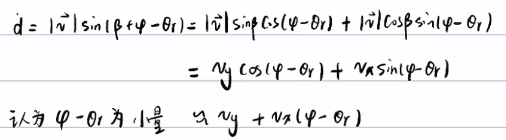 ḋ = |v⃗| sin(β+φ-θr) = |v⃗| sinβ cos(φ-θr) + |v⃗| cosβ sin(φ-θr)
= vy cos(φ-θr) + vx sin(φ-θr)
认为 φ-θr 为小量 ≈ vy + vx(φ-θr)